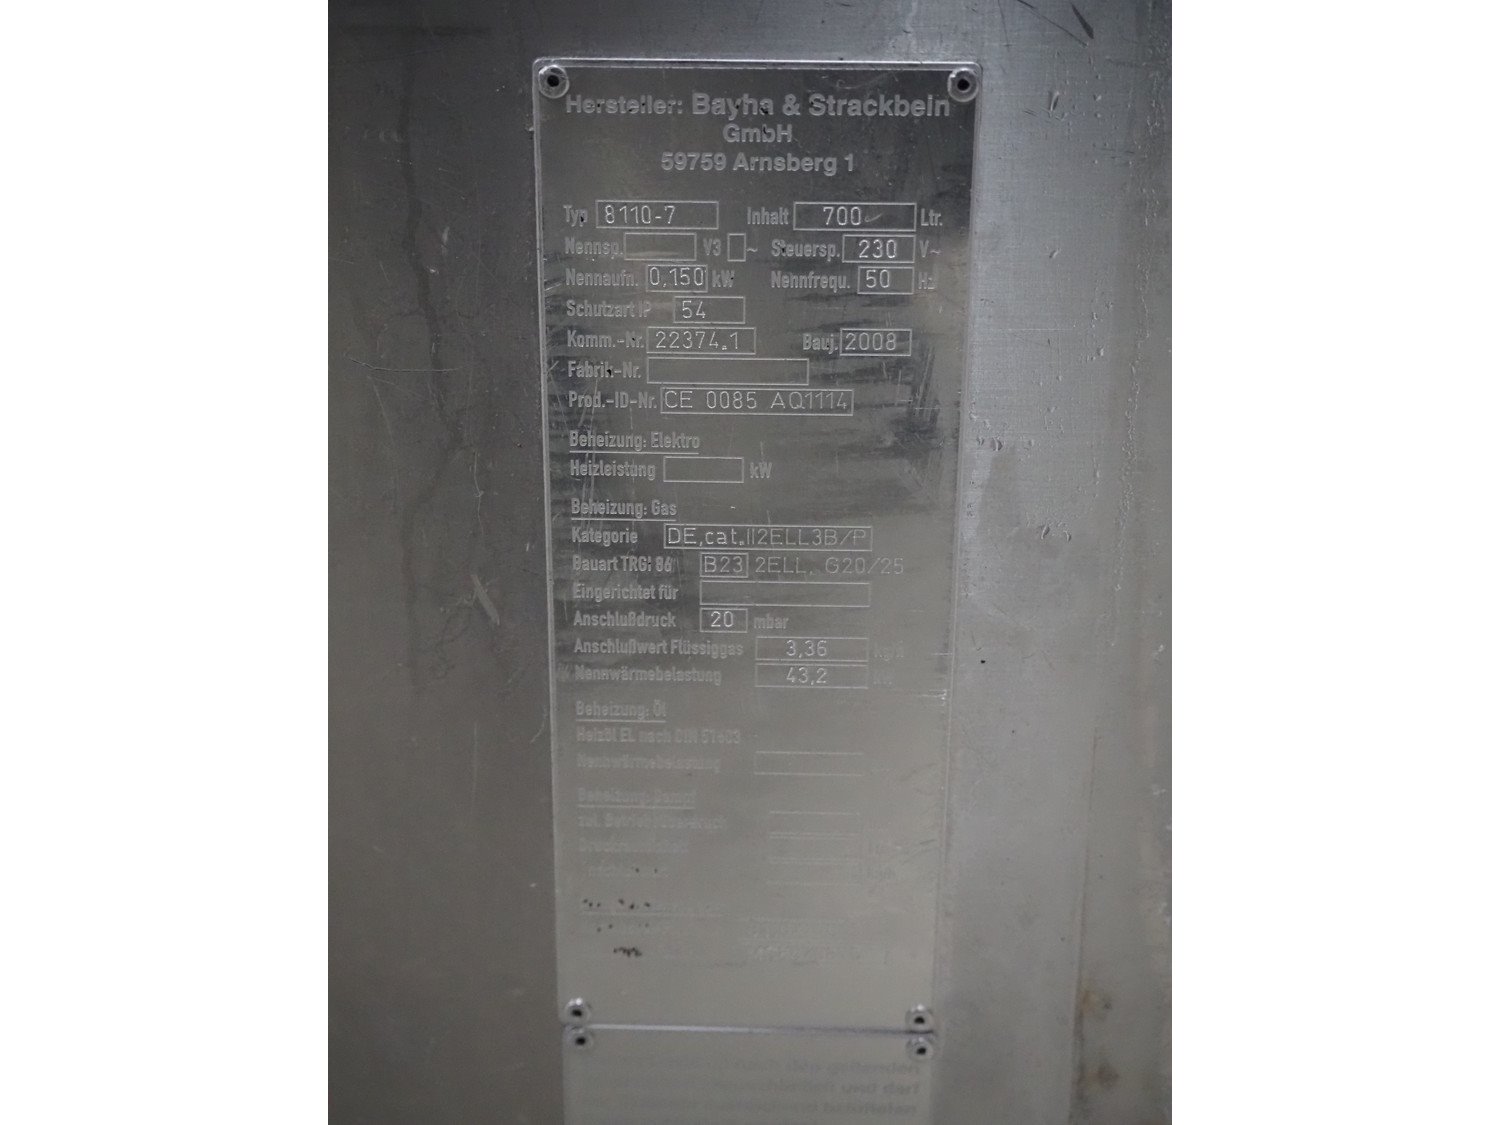 Hersteller: Bayha & Strackbein
GmbH
59759 Arnsberg 1
Typ 8110-7 Inhalt 700 Ltr.
Nennsp. V3 ~ Steuersp. 230 V~
Nennaufn. 0,150 kW Nennfrequ. 50 Hz
Schutzart IP 54
Komm.-Nr. 22374.1 Bauj. 2008
Fabrik-Nr.
Prod.-ID-Nr. CE 0085 AQ1114
Beheizung: Elektro
Heizleistung kW
Beheizung: Gas
Kategorie DE,cat.II2ELL3B/P
Bauart TRGI 86 B23 2ELL, G20/25
Eingerichtet für
Anschlußdruck 20 mbar
Anschlußwert Flüssiggas 3,36 kg/h
Nennwärmebelastung 43,2
Beheizung: Öl
Heizöl EL nach DIN 51603
Nennwärmebelastung
Beheizung: Dampf
zul. Betriebsüberdruck